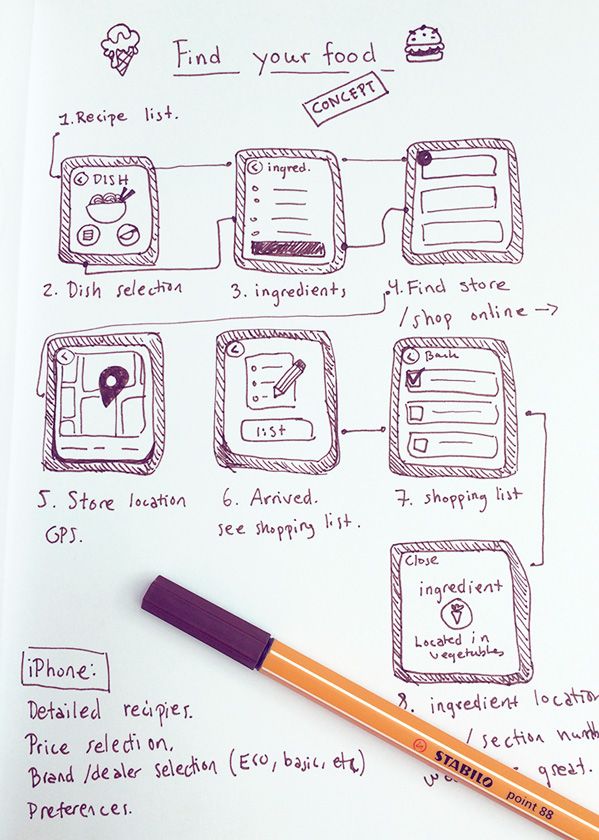 Find your food
CONCEPT
1. Recipe list.
DISH
ingred.
2. Dish selection
3. ingredients
4. Find store
/shop online →
list
Back
5. Store location
GPS.
6. Arrived.
see shopping list.
7. shopping list
Close
ingredient
Located in
vegetables
8. ingredient location
/ section
great.
iPhone:
Detailed recipies.
Price selection.
Brand/dealer selection (Eco, basic, etc)
Preferences.
STABILO
point 88